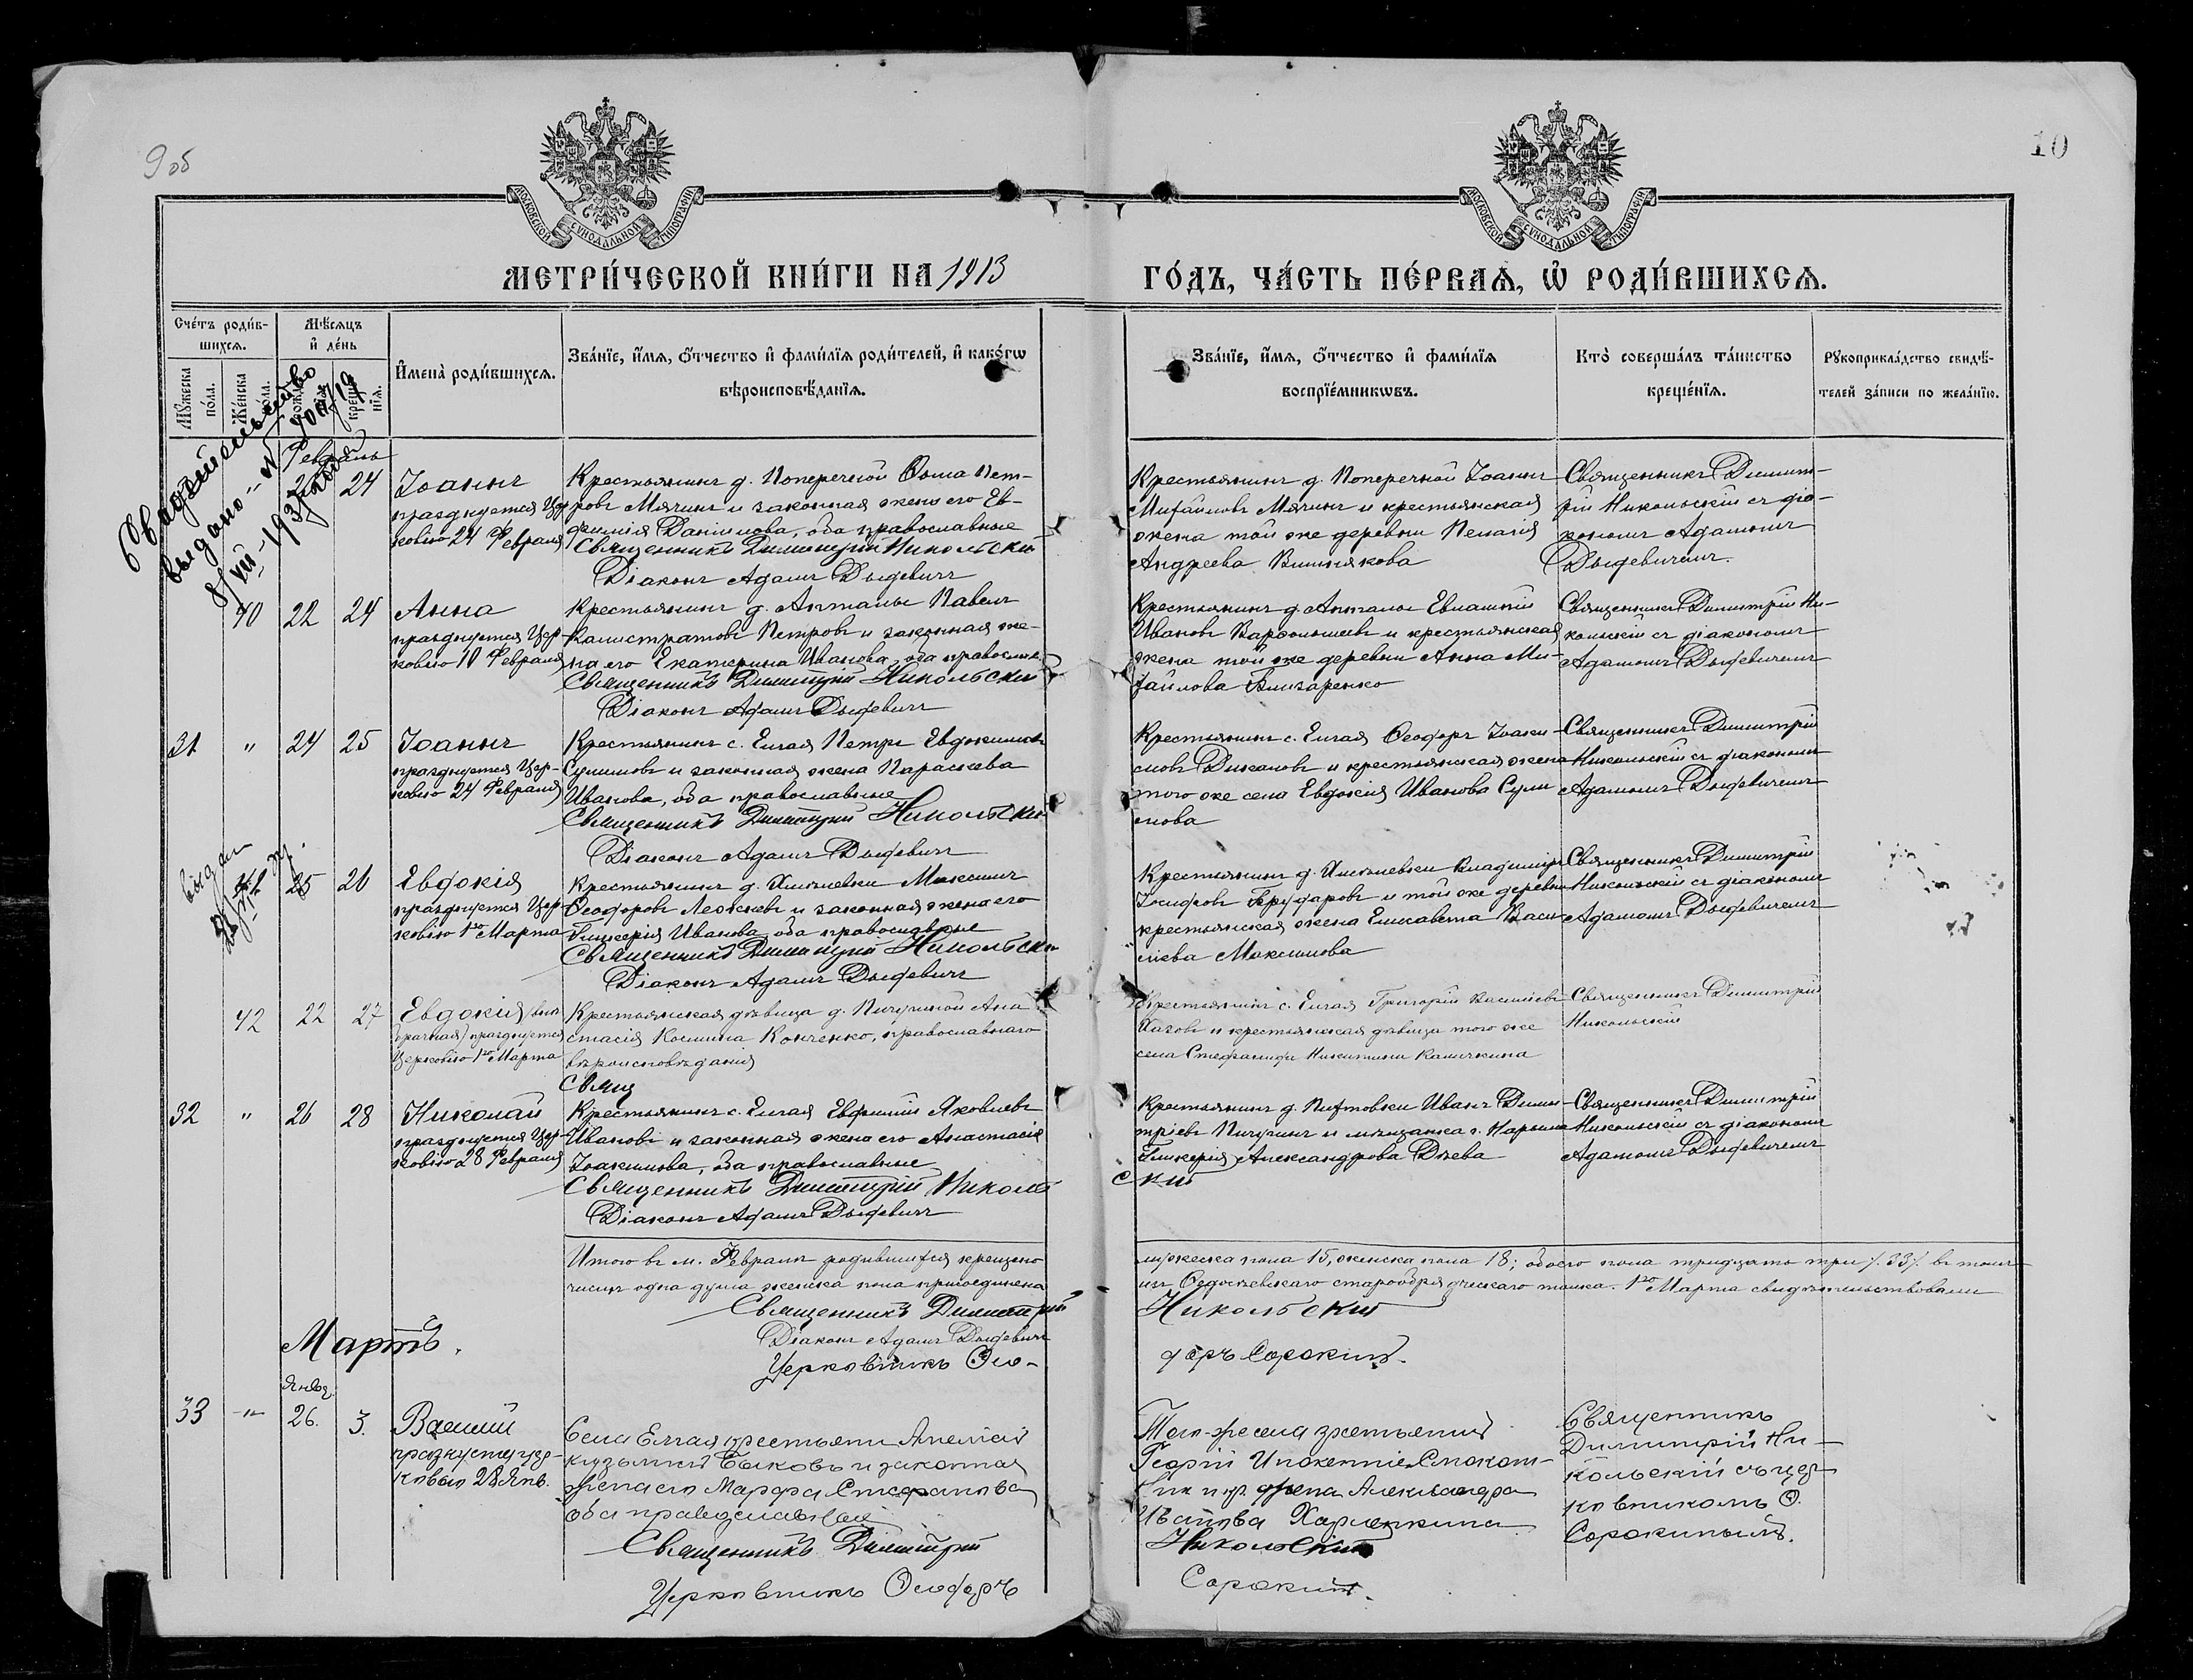 9 об
10
МОСКОВСКОЙ СѴНОДАЛЬНОЙ ТИПОГРАФІИ
МОСКОВСКОЙ СѴНОДАЛЬНОЙ ТИПОГРАФІИ
МЕТРИ́ЧЕСКОЙ КНИ́ГИ НА 1913
ГО́ДЪ, ЧА́СТЬ ПЕ́РВАѦ, Ѡ҆ РОДИ́ВШИХСѦ.
Сче́тъ роди́в-
шихсѧ.
Мѣ́сѧцъ
и҆ де́нь
Мꙋ́жеска
по́ла.
Же́нска
по́ла.
креще́-
нїѧ.
И҆мена̀ роди́вшихсѧ.
Зва́нїе, и҆́мѧ, ѻ҆́тчество и҆ фами́лїѧ роди́телей, и҆ како́гѡ
вѣроисповѣ́данїѧ.
Зва́нїе, и҆́мѧ, ѻ҆́тчество и҆ фами́лїѧ
воспрїе́мникѡвъ.
Кто̀ соверша́лъ та́инство
креще́нїѧ.
Рꙋкоприкла́дство свидѣ́-
телей за́писи по жела́нїю.
Свидѣтельство
выдано
Февраль
24
Іоаннъ
празднуется Цер-
ковію 24 Февраля
Крестьянинъ д. Поперечной Ѳома Пет-
ровъ Мячинъ и законная жена его Ев-
фимія Даніилова, оба православные
Священникъ Димитрій Никольскій
Діаконъ Адамъ Дыдевичъ
Крестьянинъ д. Поперечной Іоаннъ
Михайловъ Мячинъ и крестьянская
жена той же деревни Пелагія
Андреева Вишнякова
Священникъ Димит-
рій Никольскій съ діа-
кономъ Адамомъ
Дыдевичемъ.
40 22 24
Анна
празднуется Цер-
ковію 10 Февраля
Крестьянинъ д. Апталы Павелъ
Калистратовъ Петровъ и законная же-
на его Екатерина Иванова, оба православ.
Священникъ Димитрій Никольскій
Діаконъ Адамъ Дыдевичъ
Крестьянинъ д. Апталы Евлампій
Ивановъ и крестьянская
жена той же деревни Анна Ми-
хайлова
Священникъ Димитрій Ни-
кольскій съ діакономъ
Адамомъ Дыдевичемъ
31 " 24 25
Іоаннъ
празднуется Цер-
ковію 24 Февраля
Крестьянинъ с. Елгая Петръ Евдокимовъ
Сулимовъ и законная жена Параскева
Иванова, оба православные
Священникъ Димитрій Никольскій
Діаконъ Адамъ Дыдевичъ
Крестьянинъ с. Елгая Ѳеодоръ Іоаки-
мовъ Дикановъ и крестьянская жена
того же села Евдокія Иванова Сули
мова
Священникъ Димитрій
Никольскій съ діакономъ
Адамомъ Дыдевичемъ
выдан
41 25 26
Евдокія
празднуется Цер-
ковію 1го Марта
Крестьянинъ д. Максимъ
Ѳеодоровъ и законная жена его
Гликерія Иванова, оба православные
Священникъ Димитрій Никольскій
Діаконъ Адамъ Дыдевичъ
Крестьянинъ д. Владиміръ
Іосифовъ и той же деревни
крестьянская жена Елисавета Васи
ліева Максимова
Священникъ Димитрій
Никольскій съ діакономъ
Адамомъ Дыдевичемъ
42 22 27
Евдокія (внѣ
брачная) празднуется
Церковію 1го Марта
Крестьянская дѣвица д. Пичугиной Ана
стасія Космина Конченко, православнаго
вѣроисповѣданія
Свящ
Крестьянинъ с. Елгая Григорій Васильевъ
и крестьянская дѣвица того же
села Стефанида Никитина Калячкина
Священникъ Димитрій
Никольскій
32 " 26 28
Николай
празднуется Цер-
ковію 28 Февраля
Крестьянинъ с. Елгая Евфимій Яковлевъ
Ивановъ и законная жена его Анастасія
Іоакимова, оба православные
Священникъ Димитрій Николь
скій
Діаконъ Адамъ Дыдевичъ
Крестьянинъ д. Пихтовки Иванъ Дими-
тріевъ Пичугинъ и мѣщанка г. Нарыма
Гликерія Александрова Дѣева
Священникъ Димитрій
Никольскій съ діакономъ
Адамомъ Дыдевичемъ
Итого въ м. Февралѣ родившихся крещено
мужеска пола 15, женска пола 18; обоего пола тридцать три /. 33 /. въ томъ
числѣ одна душа женска пола присоединена
изъ старообрядческаго толка. 1го Марта свидѣтельствовали
Священникъ Димитрій
Никольскій
Діаконъ Адамъ Дыдевичъ
Церковникъ Ѳео-
доръ Сорокинъ.
Мартъ.
Январ.
33 -"- 26. 3.
Василій
празнуется цер-
ковью 28 Янв.
Села Елгая крестьянинъ Алексій
Кузьминъ Быковъ и законная
жена его Марфа Стефанова
оба православные
Священникъ Димитрій
Никольскій
Церковникъ Ѳеодоръ
Сорокинъ.
Того-же села крестьянинъ
Георгій Инокентіевъ
жена Александра
Иванова
Священникъ
Димитрій Ни-
кольскій съ цер-
ковникомъ Ѳ.
Сорокинымъ.